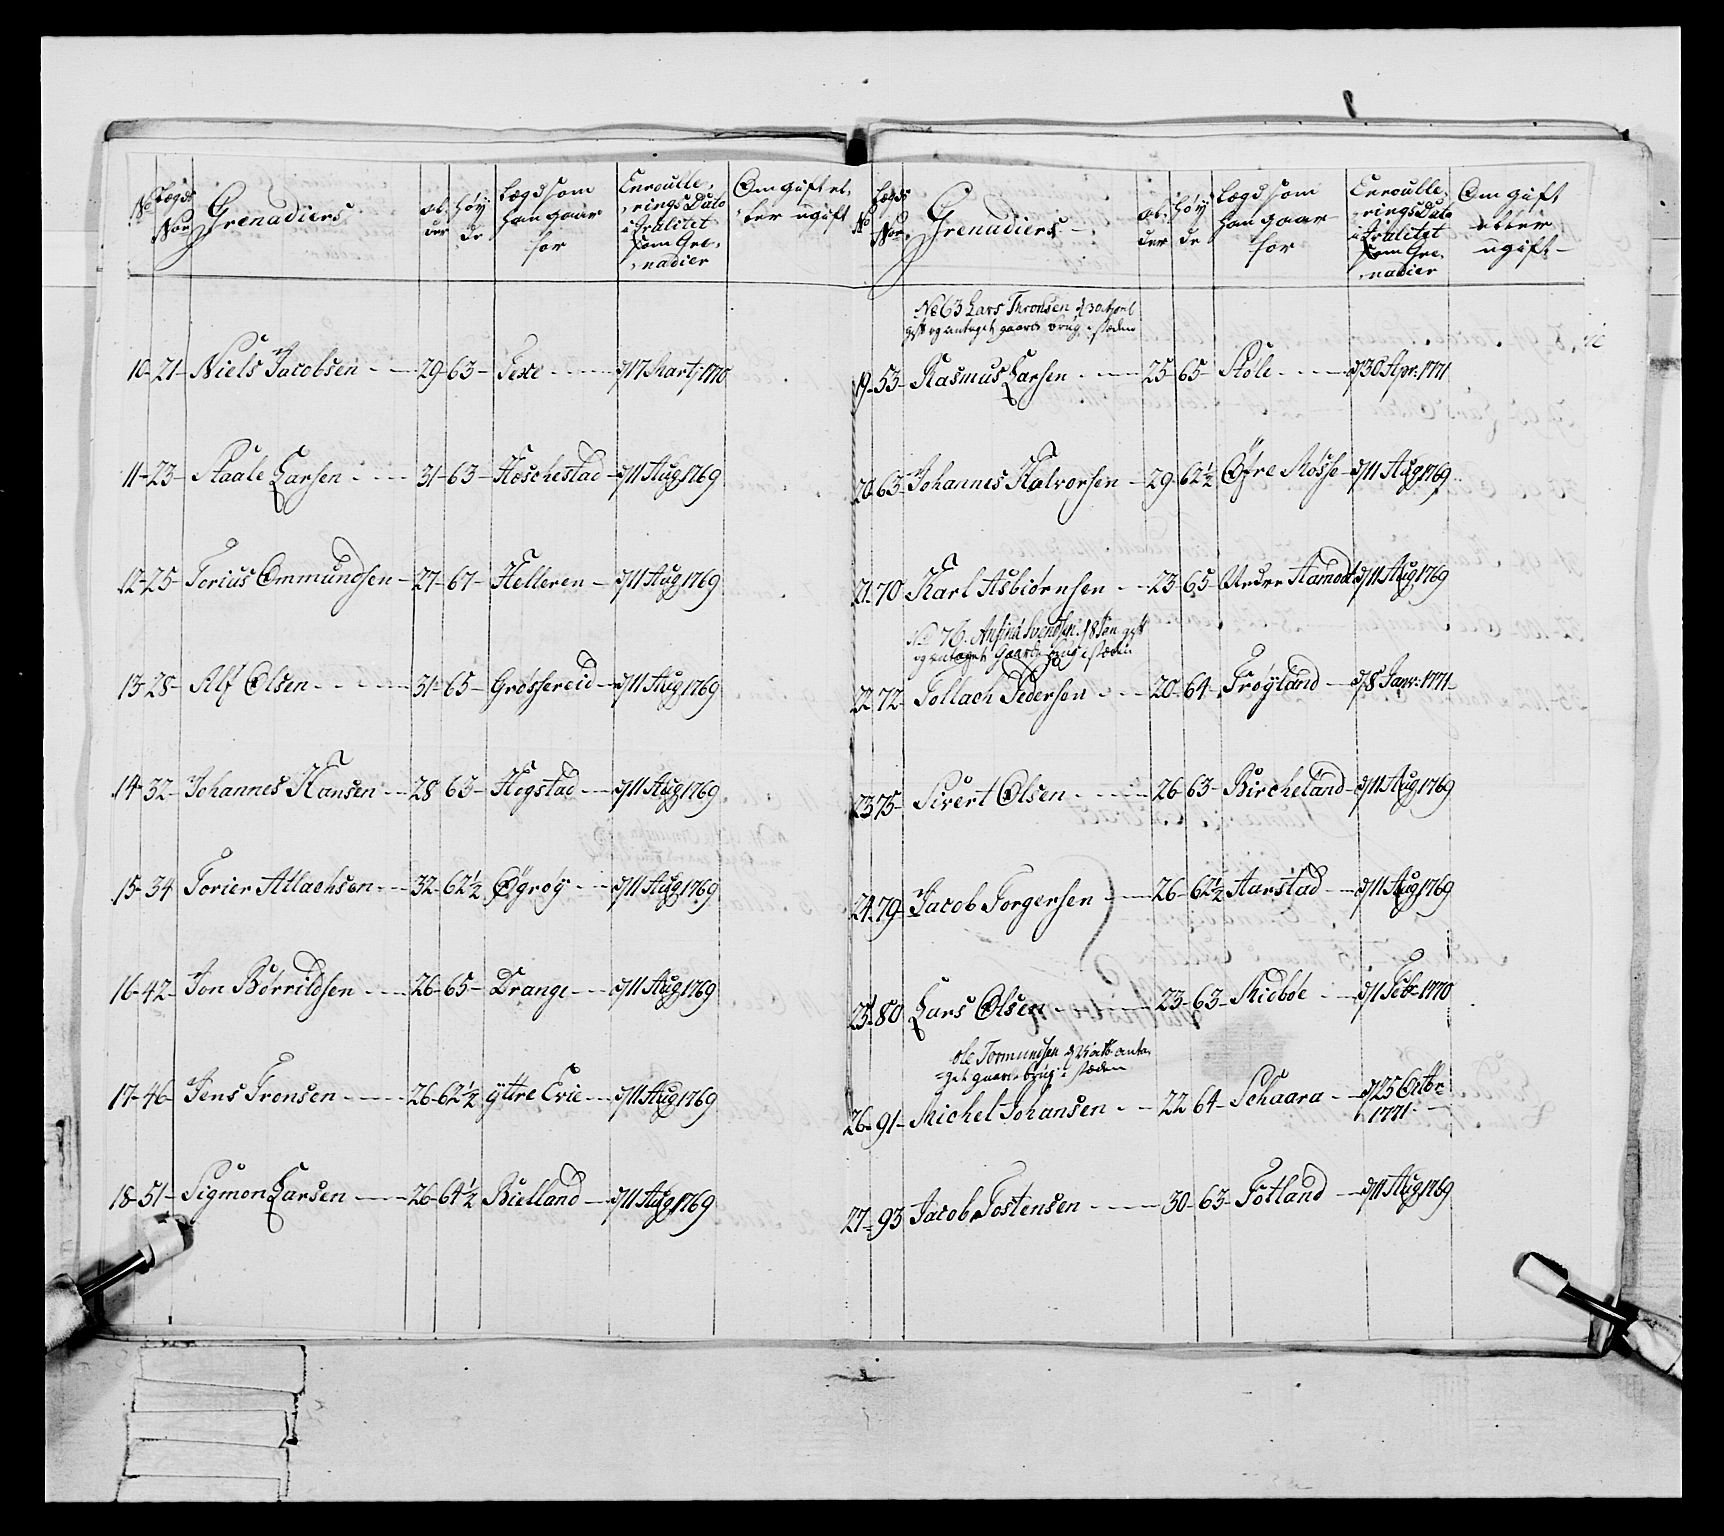 No Lægds Nor Grenadiers al: der Høy de Lægd som han gaar for Enroulle, rings Dato i qvalitet som Gre, nadier Om gift el, ler ugift
10-21- Niels Jacobsen - 29-63- Texe - d 17 Marty 1770
11-23- Staale Larsen - 31-63- Heschestad - d 11 Aug 1769
12-25- Torius Ommundsen - 27-67- Helleren - d 11 Aug 1769
13-28- Alf Olsen - 31-65- Grøsfereid - d 11 Aug 1769
14-32- Johannes Hansen - 28-63- Hegstad - d 11 Aug 1769
15-34 Torier Atlachsen - 32-62½ Øgrøÿ - d 11 Aug 1769
16-42- Jon Børrildsen - 26-65- Drange - d 11 Aug 1769
17-46- Jens Tronsen - 26-62½ ÿttre Evie - d 11 Aug 1769
18-51- Sigmon Larsen - 26-64½ Bielland - d 11 Aug 1769
No Lægds Nor Grenadiers al: der Høy de Lægd som han gaar for Enroulle, rings Dato i qvalitet som Gre, nadier Om gift eller ugift
No 63 Lars Thronsen d 30 April
gift og antaget gaards brug i stæden
19-53- Rasmus Larsen - 25-65- Støle - d 30 Apr: 1771
20-63- Johannes Halvorsen - 29-62½ Øfre Mosse d 11 Aug 1769
21-70 Karl Asbiørnsen - 23-65- Nedre Aamodt d 11 Aug 1769
No 76. Svendsen gift
og antaget Gaards brug i stæden
22-72- Tollach Pedersen - 20-64- Frøÿland - d 8 Janv: 1771
23-75- Sivert Olsen - 26-63- Bircheland - d 11 Aug 1769
24-79- Jacob Torgersen - 26-62½ Aarstad - d 11 Aug 1769
25-80 Lars Olsen - 23-63- Midbøe - d 1 Feb: 1770
Ole Tormundsen d 25 octb anta,
get gaards brug i stæden
26-91- Michel Johansen - 22-64- Schaara - d 25 Octbr:
1771
27-93 Jacob Tostensen - 30-63- Totland - d 11 Aug 1769